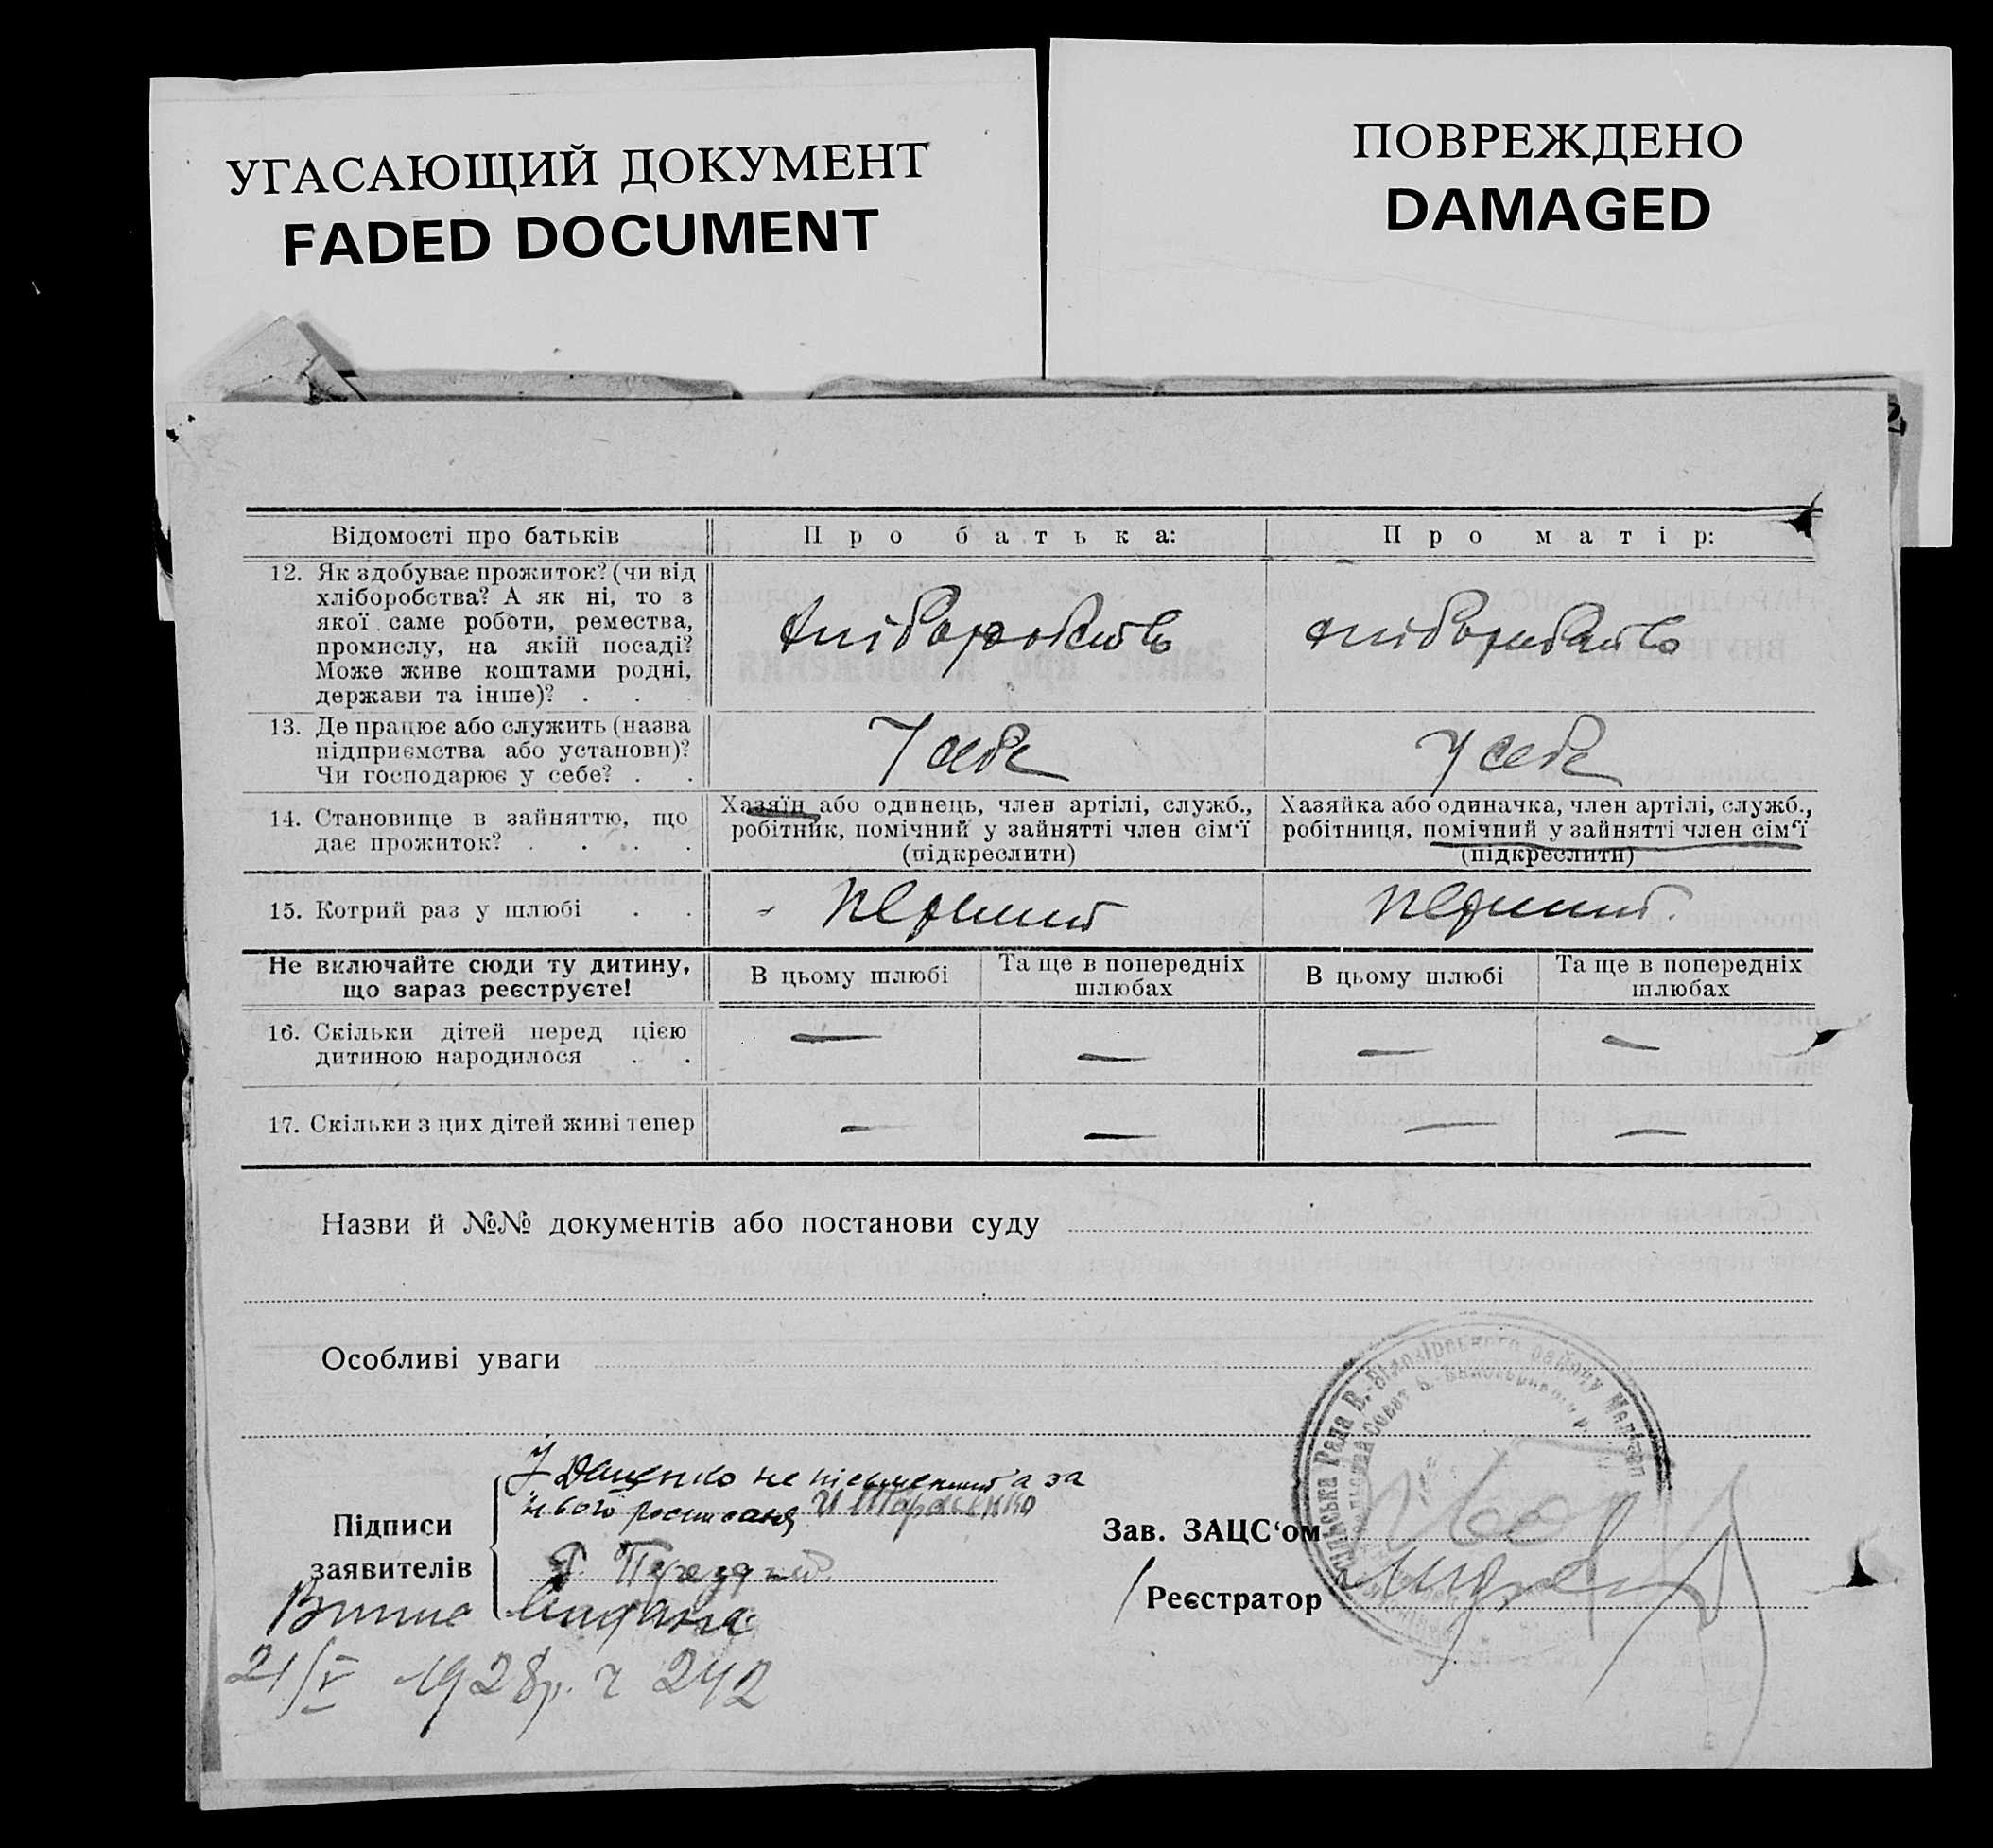 УГАСАЮЩИЙ ДОКУМЕНТ
FADED DOCUMENT
ПОВРЕЖДЕНО
DAMAGED
Відомості про батьків
Про батька:
Про матір:
12. Як здобуває прожиток? (чи від
хліборобства? А як ні, то з
якої саме роботи, ремества,
промислу, на якій посаді?
Може живе коштами родні,
держави та інше)? . . .
хліборобство
хліборобство
13. Де працює або служить (назва
підприємства або установи)?
Чи господарює у себе? . .
У себе
У себе
14. Становище в зайняттю, що
дає прожиток? . . . .
Хазяїн або одинець, член артілі, служб.,
робітник, помічний у зайнятті член сім'ї
(підкреслити)
Хазяйка або одиначка, член артілі, служб.,
робітниця, помічний у зайнятті член сім'ї
(підкреслити)
15. Котрий раз у шлюбі . .
первий
первий.
Не включайте сюди ту дитину,
що зараз реєструєте!
В цьому шлюбі
Та ще в попередніх
шлюбах
В цьому шлюбі
Та ще в попередніх
шлюбах
16. Скільки дітей перед цією
дитиною народилося . .
—
—
—
—
17. Скільки з цих дітей живі тепер
—
—
—
—
Назви й №№ документів або постанови суду
Особливі уваги
Підписи
заявителів
не письменний а за
нього
21/V 1928р. ч 242
Зав. ЗАЦС'ом
Реєстратор
Рада В.-Білозірського району